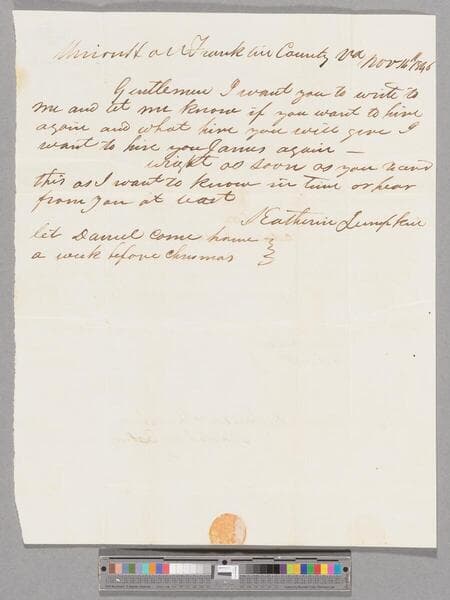 Union Hall Franklin County Va Nov 14th 1846
Gentlemen I want you to write to
me and let me know if you want to hire
again and what hire you will give I
want to hire you James again —
wright as soon as you
this as I want to know in time or hear
from you at least
Katherin Lumpkin
let Daniel come home
a week before Chrismas